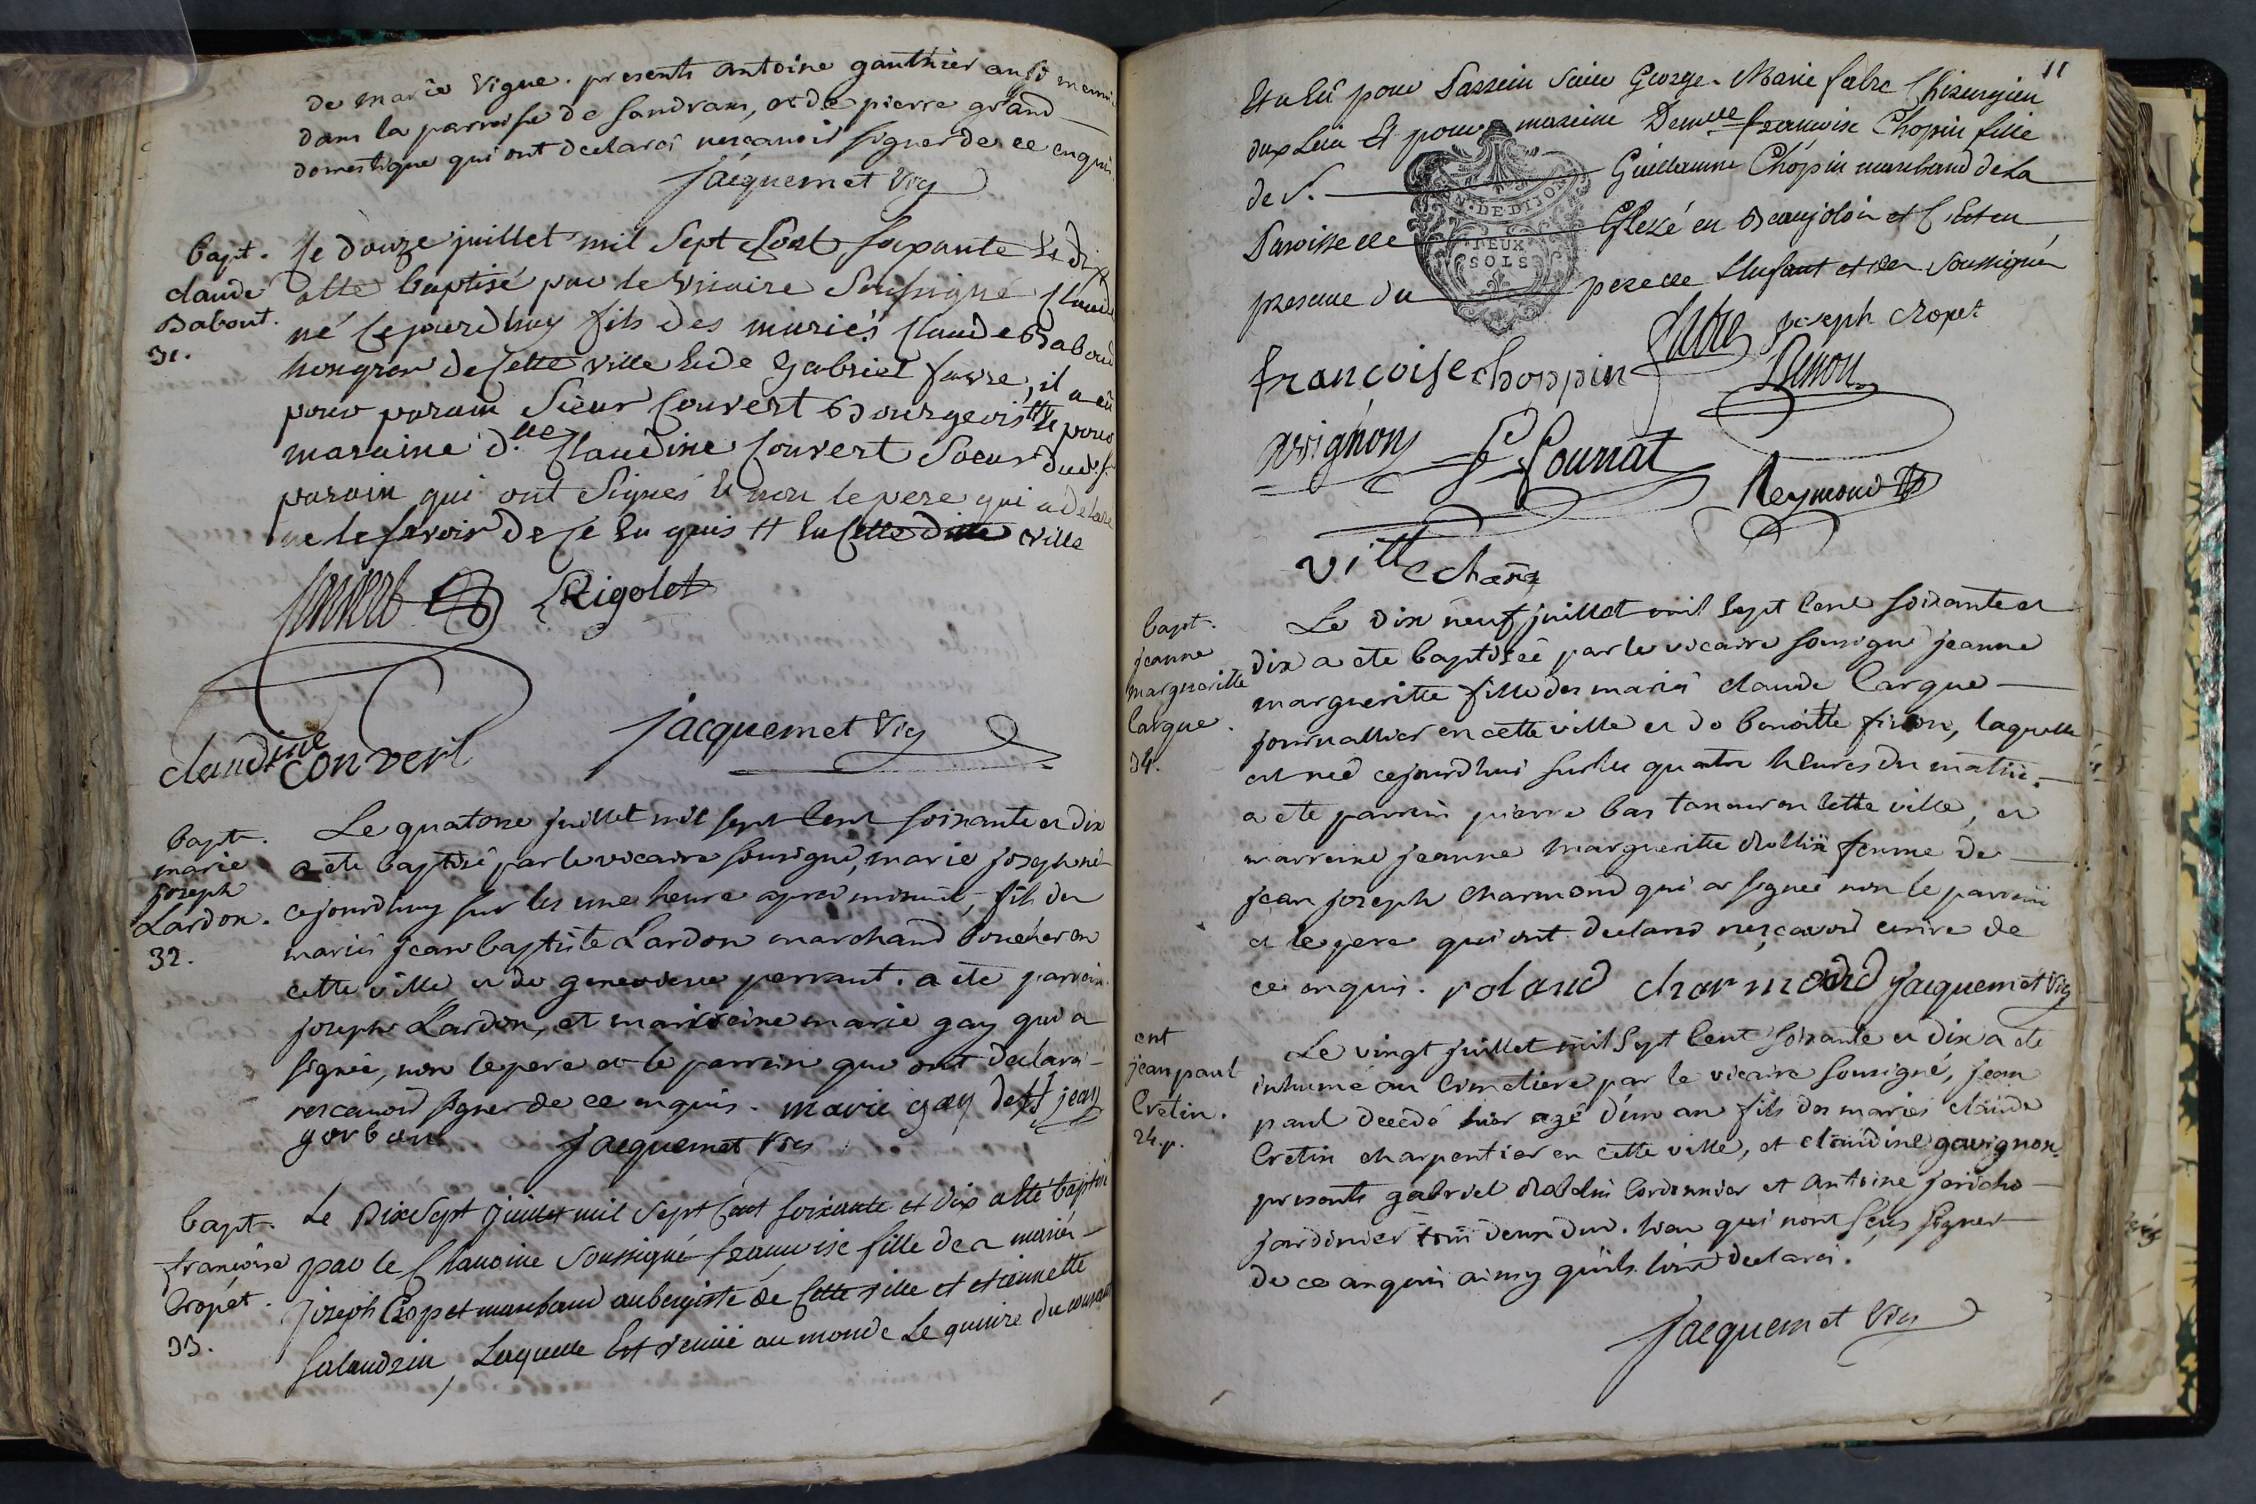 de marie Vigne. presents antoine gauthier aussi
dans la parroisse de Sandrans, et de pierre grand
domestique qui ont declaré nesçavoir signer de ce enquis.
jacquemet Vic
bapt.
claude
Babout.
31.
Le douze juillet mil Sept Cent soixante Et dix
a ete baptisé par le Vicaire Soussigné Claude
né cejourdhuy fils des mariés Claude Baboud
hongron de Cette ville Et de Gabriel favre, il a eû
pour parain Sieur Convert Bourgeois # Et pour
maraine d.lle Claudine Convert Soeur dud. S.
parain qui ont Signés Et non le pere qui a déclaré
ne le savoir de Ce En quis # En Cette ditte ville
Convert Rigolet
claudine convert
jacquemet Vic
bapt.
marie
joseph
Lardon.
32.
Le quatorze juillet mil sept Cent soixante et dix
a ete baptisé par le vicaire sousigné, marie joseph né
cejourdhuy sur les une heure apres minuit, fils des
mariés jean baptiste Lardon marchand boucher en
cette ville et de genevieve perraut. a ete parrain
joseph Lardon, et marreine marie gay qui a
signée, non le pere et le parrain qui ont declaré
nesçavoir signer de ce enquis. marie gay de jean
gorban
jacquemet Vic
bapt.
françoise
Cropet.
33.
Le Dix Sept Juillet mil Sept Cent soixante et dix a ete baptisé
par le Chanoine Soussigné françoise fille des mariés
Joseph Cropet marchand aubergiste de Cette ville et etiennette
Salandrin, Laquelle Est venüe au monde Le quinze du courant
11
Et a Eû pour Parrein Sieur George Marie fabre Chirurgien
du Lieu Et pour mareine Demlle françoise Chopin fille
de S. Guillaume Chopin marchand de La
Paroisse de en Beaujolois et C'est en
presence du pere de L'Enfant et des Soussignés
N. DE DIJON
DEUX
SOLS
fabre joseph cropet
françoise choppin Renon
avignon Counat
Reymond
ville
bapt.
jeanne
margueritte
Cargue.
34.
Le dix neuf juillet mil sept Cent soixante et
dix a ete baptisée par le vicaire sousigné jeanne
margueritte fille des mariés claude Cargue
journallier en cette ville et de benoitte finon, laquelle
est née cejourdhui sur les quatre heures du matin.
a ete parrein pierre bas taneur en Cette ville, et
marreine jeanne margueritte Rollin femme de
jean joseph charmond qui a signée non le parrein
et le pere qui ont declaré nesçavoir ecrire de
ce enquis. roland charmond jacquemet Vic
ent
jean paul
Cretin.
24.p.
Le vingt juillet mil Sept Cent soixante et dix a ete
inhumé au Cimetiere par le vicaire sousigné, jean
paul decedé hier agé d'un an fils des mariés claude
Cretin charpentier en cette ville, et claudine gavignon.
presents gabriel Cordonnier et antoine jericho
jardinier tous deux dud. lieu qui n'ont sçus signer
de ce enquis ainsy qu'ils l'ont declaré.
jacquemet Vic